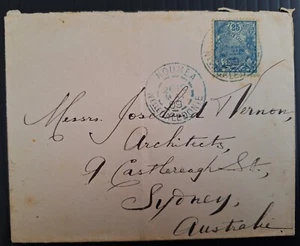 25
NOUMEA
Messrs. Joseland & Vernon,
Architects,
9 Castlereagh St.,
Sydney,
Australia.